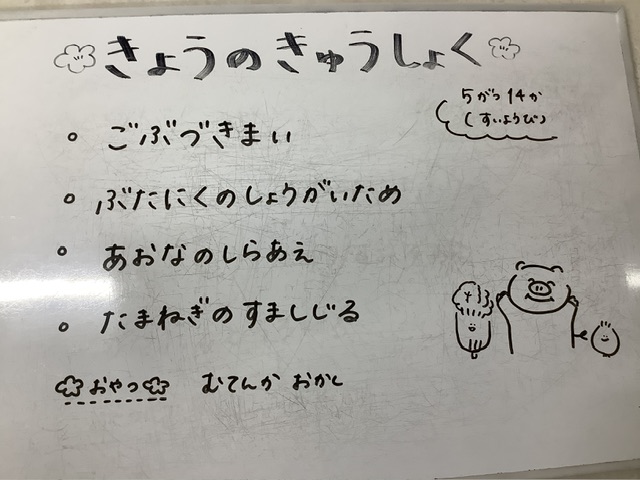 きょうのきゅうしょく
5がつ14か
(すいようび)
・ごぶづきまい
・ぶたにくのしょうがいため
・あおなのしらあえ
・たまねぎのすましじる
おやつ むてんか おかし